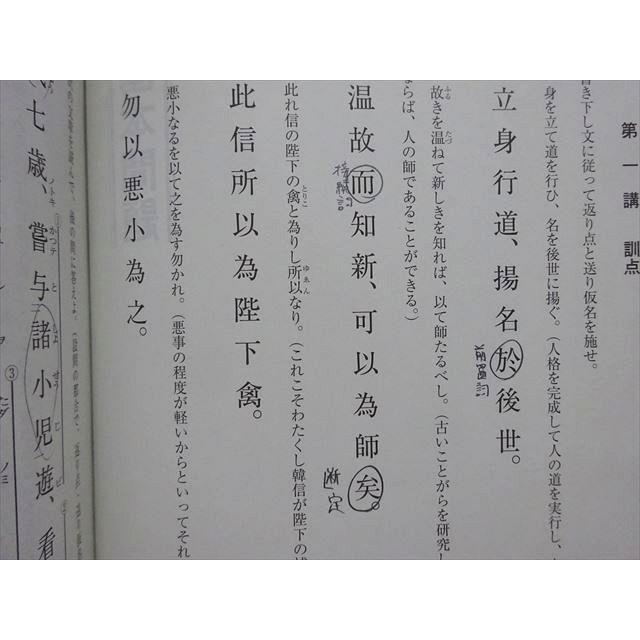 第一講 訓点
き下し文に従って返り点と送り仮名を施せ。
身を立て道を行ひ、名を後世に揚ぐ。(人格を完成して人の道を実行し、
立身行道、揚名於後世。
故きを温ねて新しきを知れば、以て師たるべし。(古いことがらを研究し
ならば、人の師であることができる。)
温故而知新、可以為師矣。
接続詞
断定
此れ信の陛下の禽と為りし所以なり。(これこそわたくし韓信が陛下の
此信所以為陛下禽。
悪小なるを以て之を為す勿かれ。(悪事の程度が軽いからといってそれ
勿以悪小為之。
の文章を読んで、後の問に答えよ。
七歳、嘗与諸小児遊、看
③